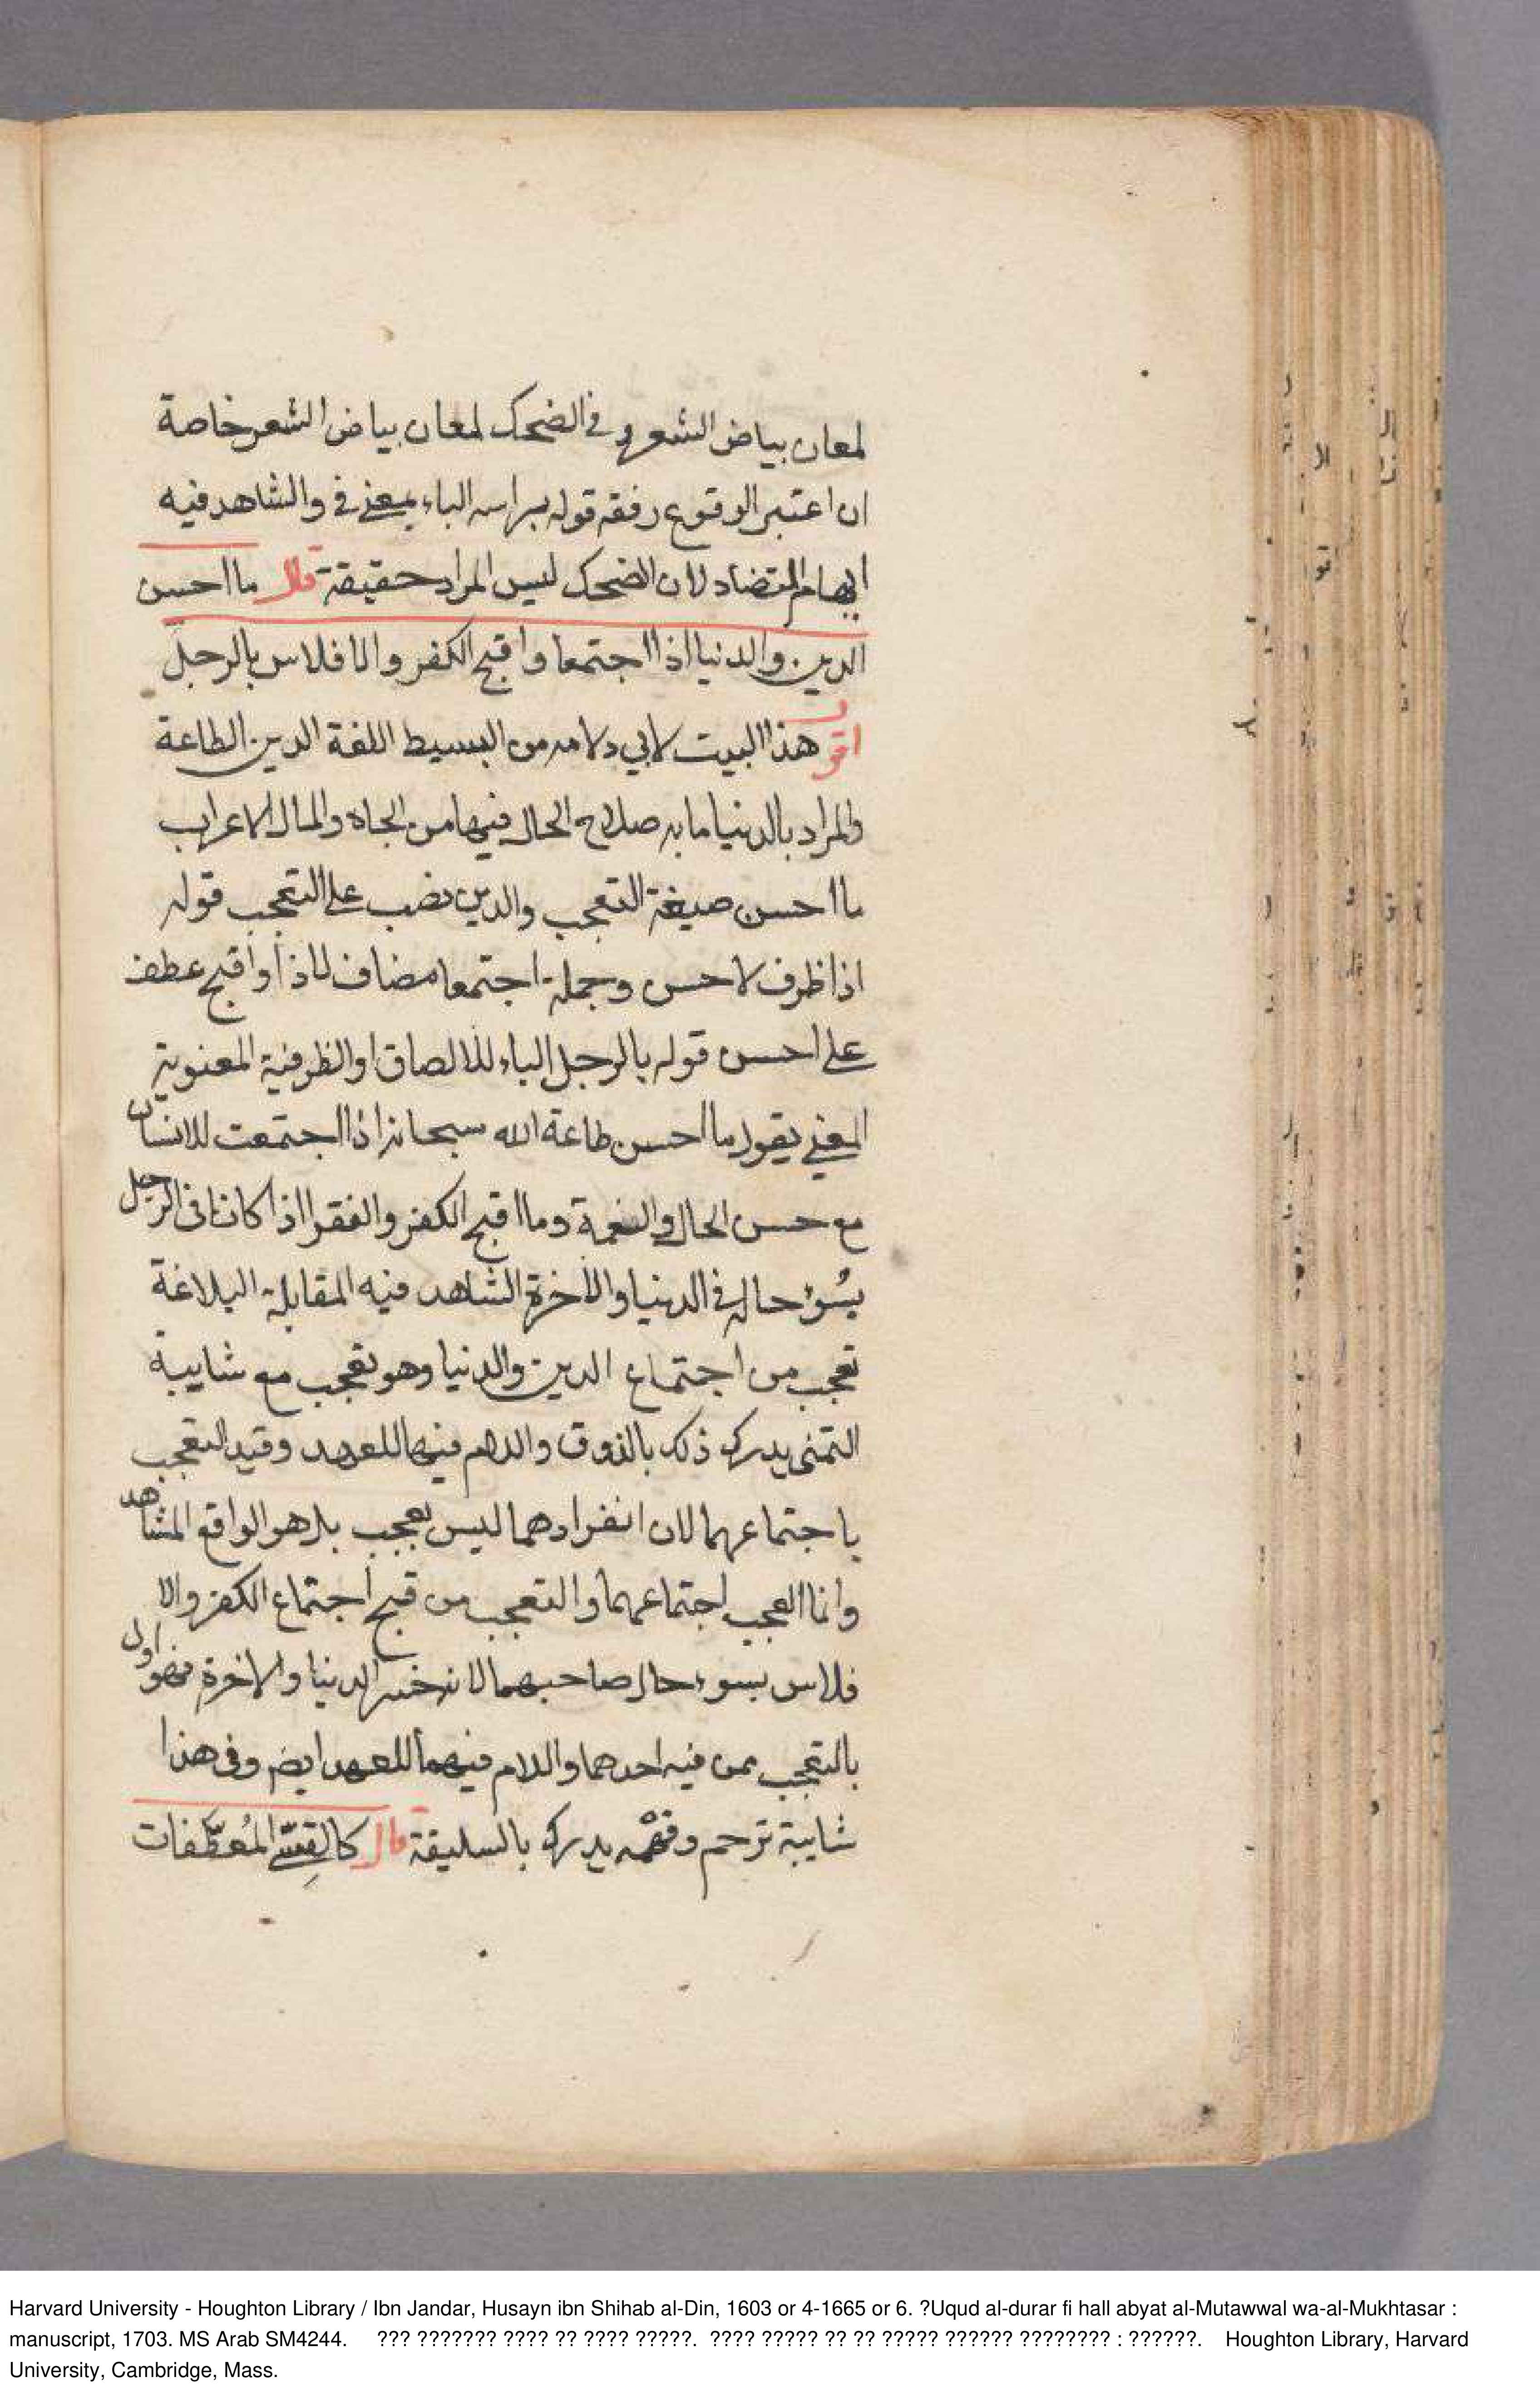 لمعان بياض الشعر وفي الضحك لمعان بياض الشعر خاصة
ان اعتبر الوقوع رفقه قوله براسه الباء بمعنى في والشاهد فيه
ايهام التضاد لان الضحك ليس المراد حقيقة قال ما احسن
الدين والدنيا اذا اجتمعا واقبح الكفر والافلاس بالرجل
اقول هذا البيت لابي دلامه من البسيط اللغة الدين الطاعة
والمراد بالدنيا ما به صلاح الحال فيها من الجاه والمال الاعراب
ما احسن صيغة التعجب والدين نصب على التعجب قوله
اذا ظرف لاحسن وجملة اجتمعا مضاف لاذا واقبح عطف
على احسن قوله بالرجل الباء للالصاق او الظرفية المعنوية
المعنى يقول ما احسن طاعة الله سبحانه اذا اجتمعت للانسان
مع حسن الحال والنعمة وما اقبح الكفر والفقر اذا كانا في الرجل
يسُوؤ حاله في الدنيا والآخرة الشاهد فيه المقابلة البلاغة
تعجب من اجتماع الدين والدنيا وهو تعجب مع شايبة
التمنى يدرك ذلك بالذوق واللام فيها للعهد وقيد التعجب
باجتماعهما لان انفرادهما ليس بعجب بل هو الواقع المشاهد
وانما العجب اجتماعهما والتعجب من قبح اجتماع الكفر والا
فلاس بسوء حال صاحبهما لانه خسر الدنيا والاخرة فهو اولى
بالتعجب ممن فيه احدهما واللام فيهما للعهد ايضا وفي هذا
شايبة ترحم يدرك بالسليقة قال كالقِسِّي المُعطّفات
Harvard University - Houghton Library / Ibn Jandar, Husayn ibn Shihab al-Din, 1603 or 4-1665 or 6. ?Uqud al-durar fi hall abyat al-Mutawwal wa-al-Mukhtasar :
manuscript, 1703. MS Arab SM4244. ??? ??????? ???? ?? ???? ?????. ???? ????? ?? ?? ????? ?????? ???????? : ??????. Houghton Library, Harvard
University, Cambridge, Mass.